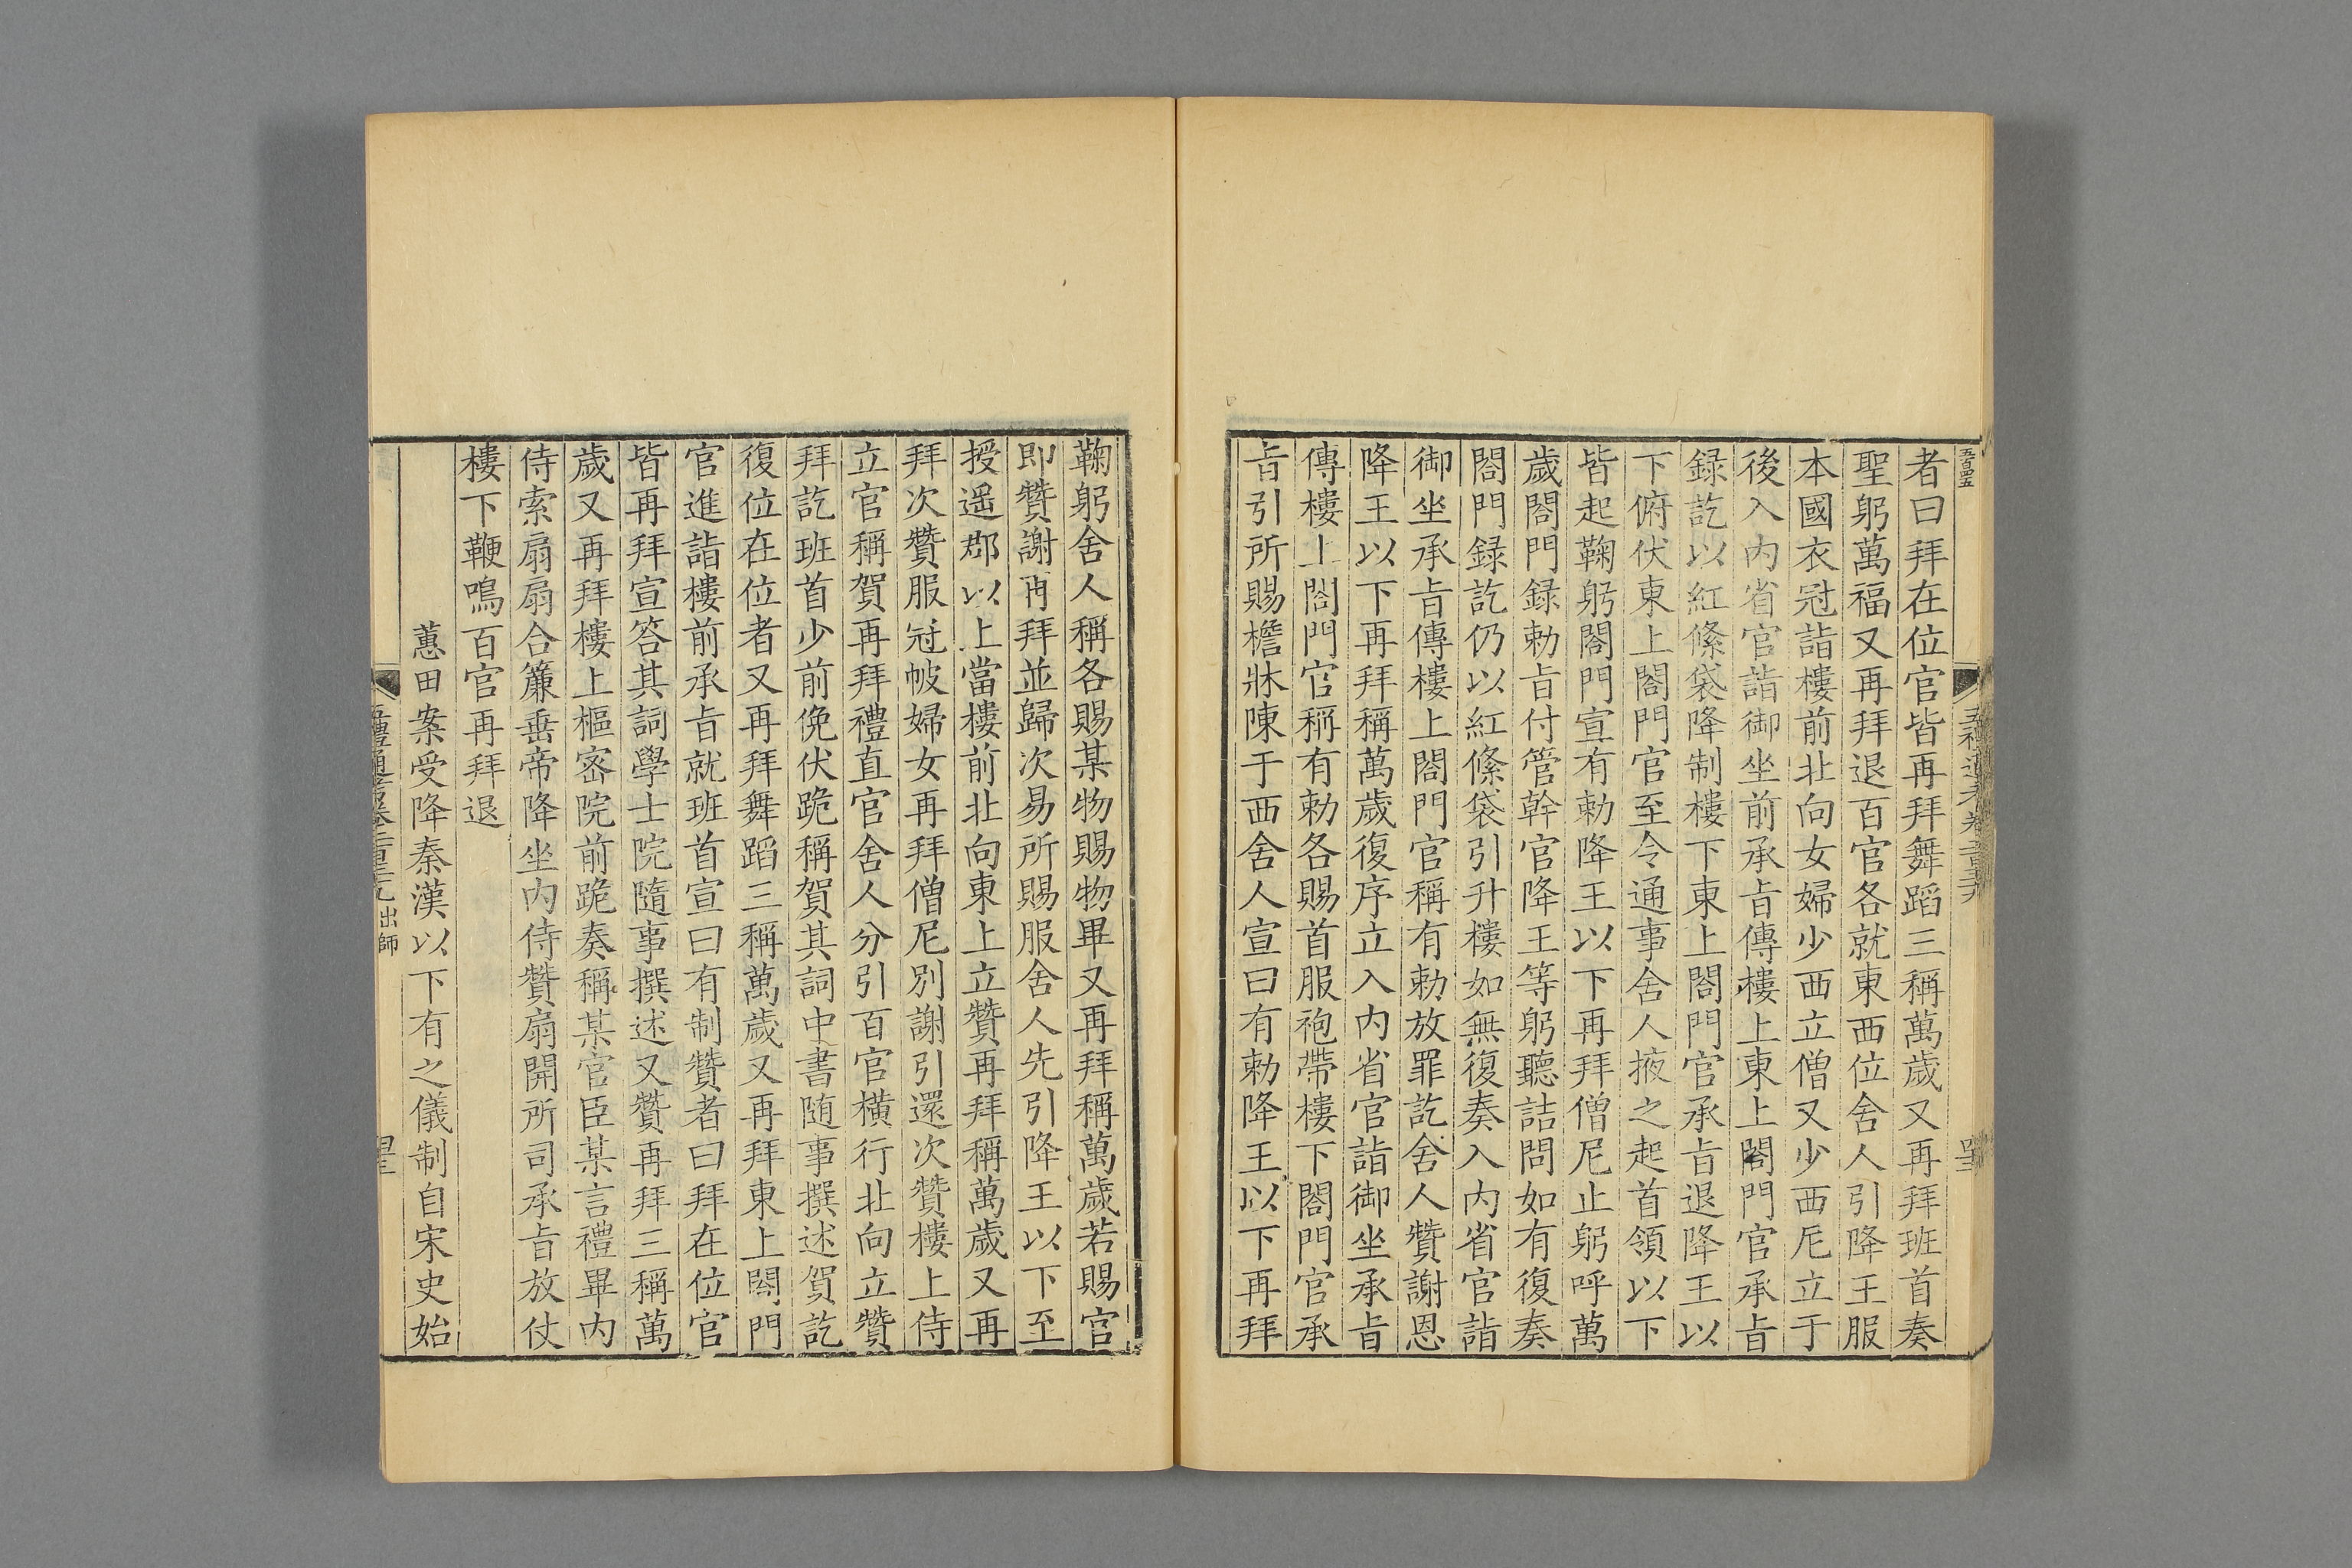 者曰拜在位官皆再拜舞蹈三稱萬歲又再拜班首奏
聖躬萬福又再拜退百官各就東西位舍人引降王服
本國衣冠詣樓前北向女婦少西立僧又少西尼立于
後入內省官詣御坐前承旨傳樓上東上閤門官承旨
録訖以紅絛袋降制樓下東上閤門官承旨退降王以
下俯伏東上閤門官至令通事舍人掖之起首領以下
皆起鞠躬閤門宣有勅降王以下再拜僧尼止躬呼萬
歲閤門録勅旨付管幹官降王等躬聽詰問如有復奏
閤門録訖仍以紅絛袋引升樓如無復奏入內省官詣
御坐承旨傳樓上閤門官稱有勅放罪訖舍人贊謝恩
降王以下再拜稱萬歲復序立入內省官詣御坐承旨
傳樓上閤門官稱有勅各賜首服袍帶樓下閤門官承
旨引所賜檐牀陳于西舍人宣曰有勅降王以下再拜
鞠躬舍人稱各賜某物賜物畢又再拜稱萬歲若賜官
即贊謝再拜並歸次易所賜服舍人先引降王以下至
授遥郡以上當樓前北向東上立贊再拜稱萬歲又再
拜次贊服冠帔婦女再拜僧尼別謝引還次贊樓上侍
立官稱賀再拜禮直官舍人分引百官橫行北向立贊
拜訖班首少前俛伏跪稱賀其詞中書隨事撰述賀訖
復位在位者又再拜舞蹈三稱萬歲又再拜東上閤門
官進詣樓前承旨就班首宣曰有制贊者曰拜在位官
皆再拜宣答其詞學士院隨事撰述又贊再拜三稱萬
歲又再拜樓上樞密院前跪奏稱某官臣某言禮畢內
侍索扇扇合簾垂帝降坐內侍贊扇開所司承旨放仗
樓下鞭鳴百官再拜退
蕙田案受降秦漢以下有之儀制自宋史始
五禮通考卷二百三十九 出師